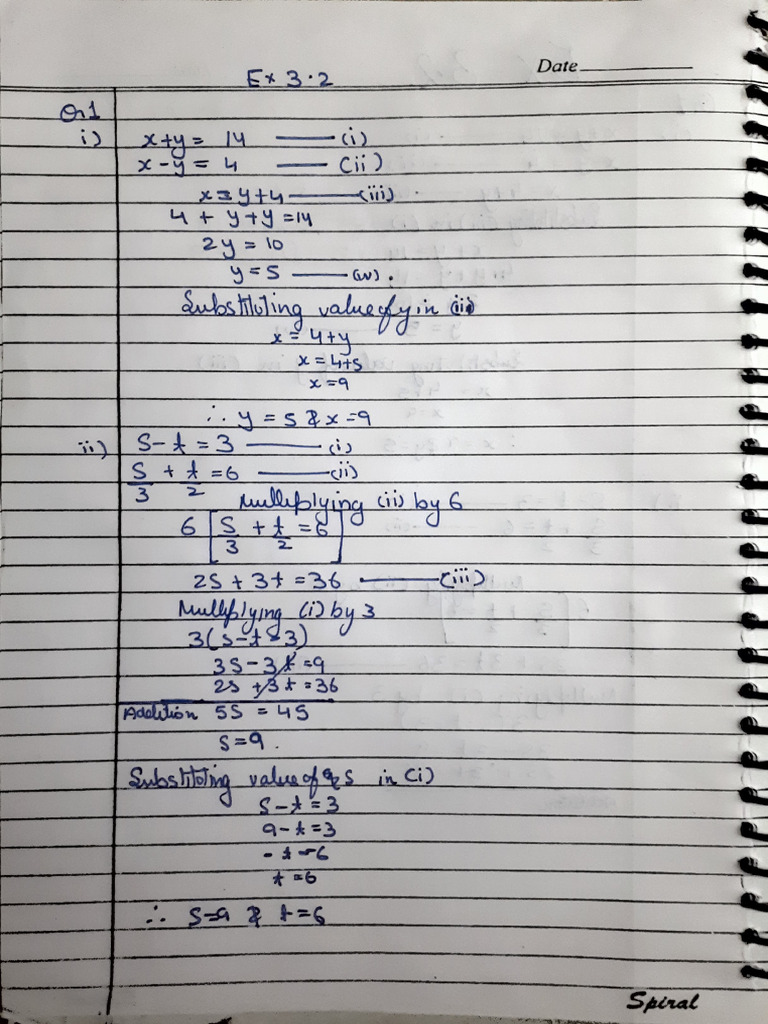 Date
Ex 3.2
Qn1
i) x+y = 14 —— (i)
x-y = 4 —— (ii)
x=y+4 —— (iii)
4 + y+y =14
2y = 10
y=5 —— (iv).
Substituting value of y in (iii)
x = 4+y
x = 4+5
x=9
∴ y = 5 & x=9
ii) S-t = 3 —— (i)
S/3 + t/2 = 6 —— (ii)
Multiplying (ii) by 6
6 [S/3 + t/2 = 6]
2S + 3t = 36 —— (iii)
Multiplying (i) by 3
3(S-t=3)
3S-3t=9
2S +3t=36
Addition 5S = 45
S=9.
Substituting value of S in (i)
S-t=3
9-t=3
-t=-6
t=6
∴ S=9 & t=6
Spiral